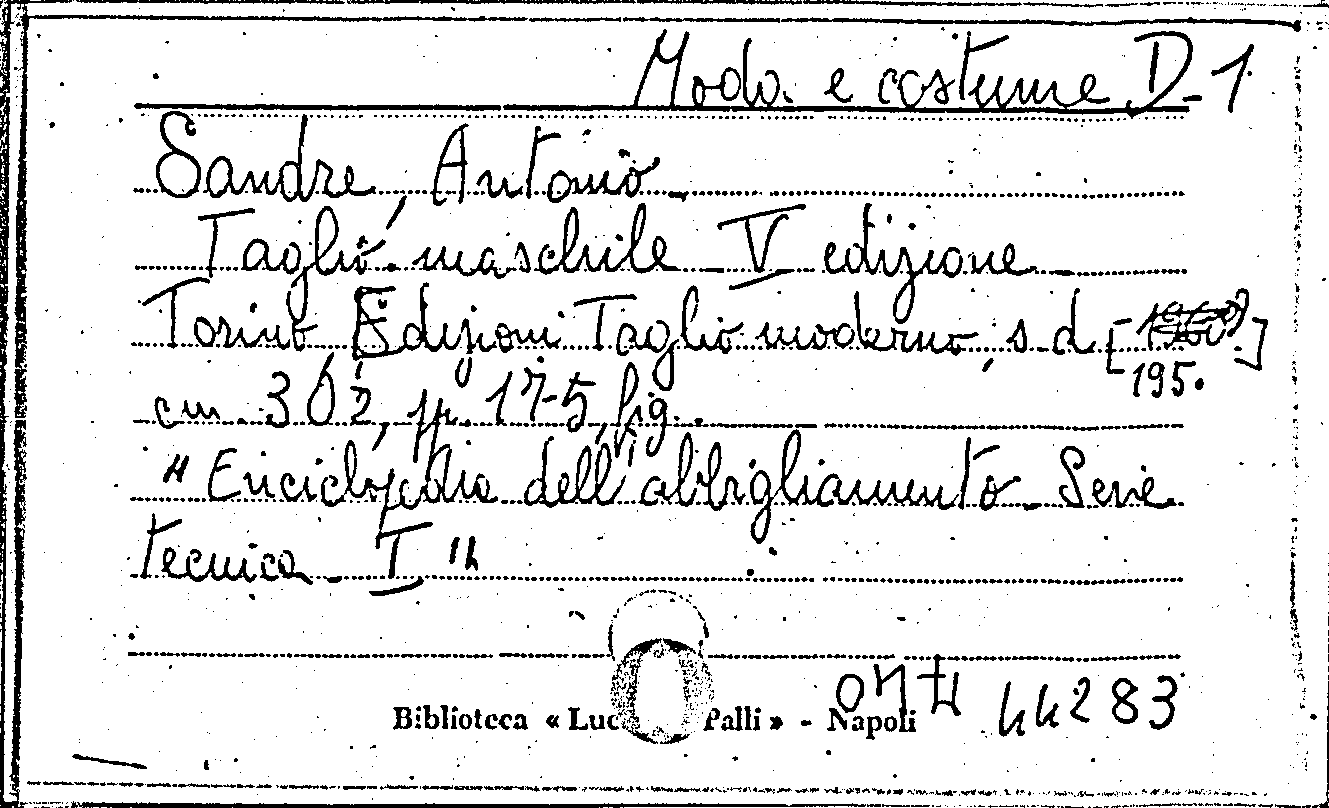 Moda e costume D-1
Sandre, Antonio
Taglio maschile V edizione
Torino, Edizioni Taglio moderno, s d [ ]
195.
cm. 302, pp. 175, fig.
"Enciclopedia dell'abbigliamento Serie
tecnica I"
Biblioteca « Luc Palli » - Napoli
44283